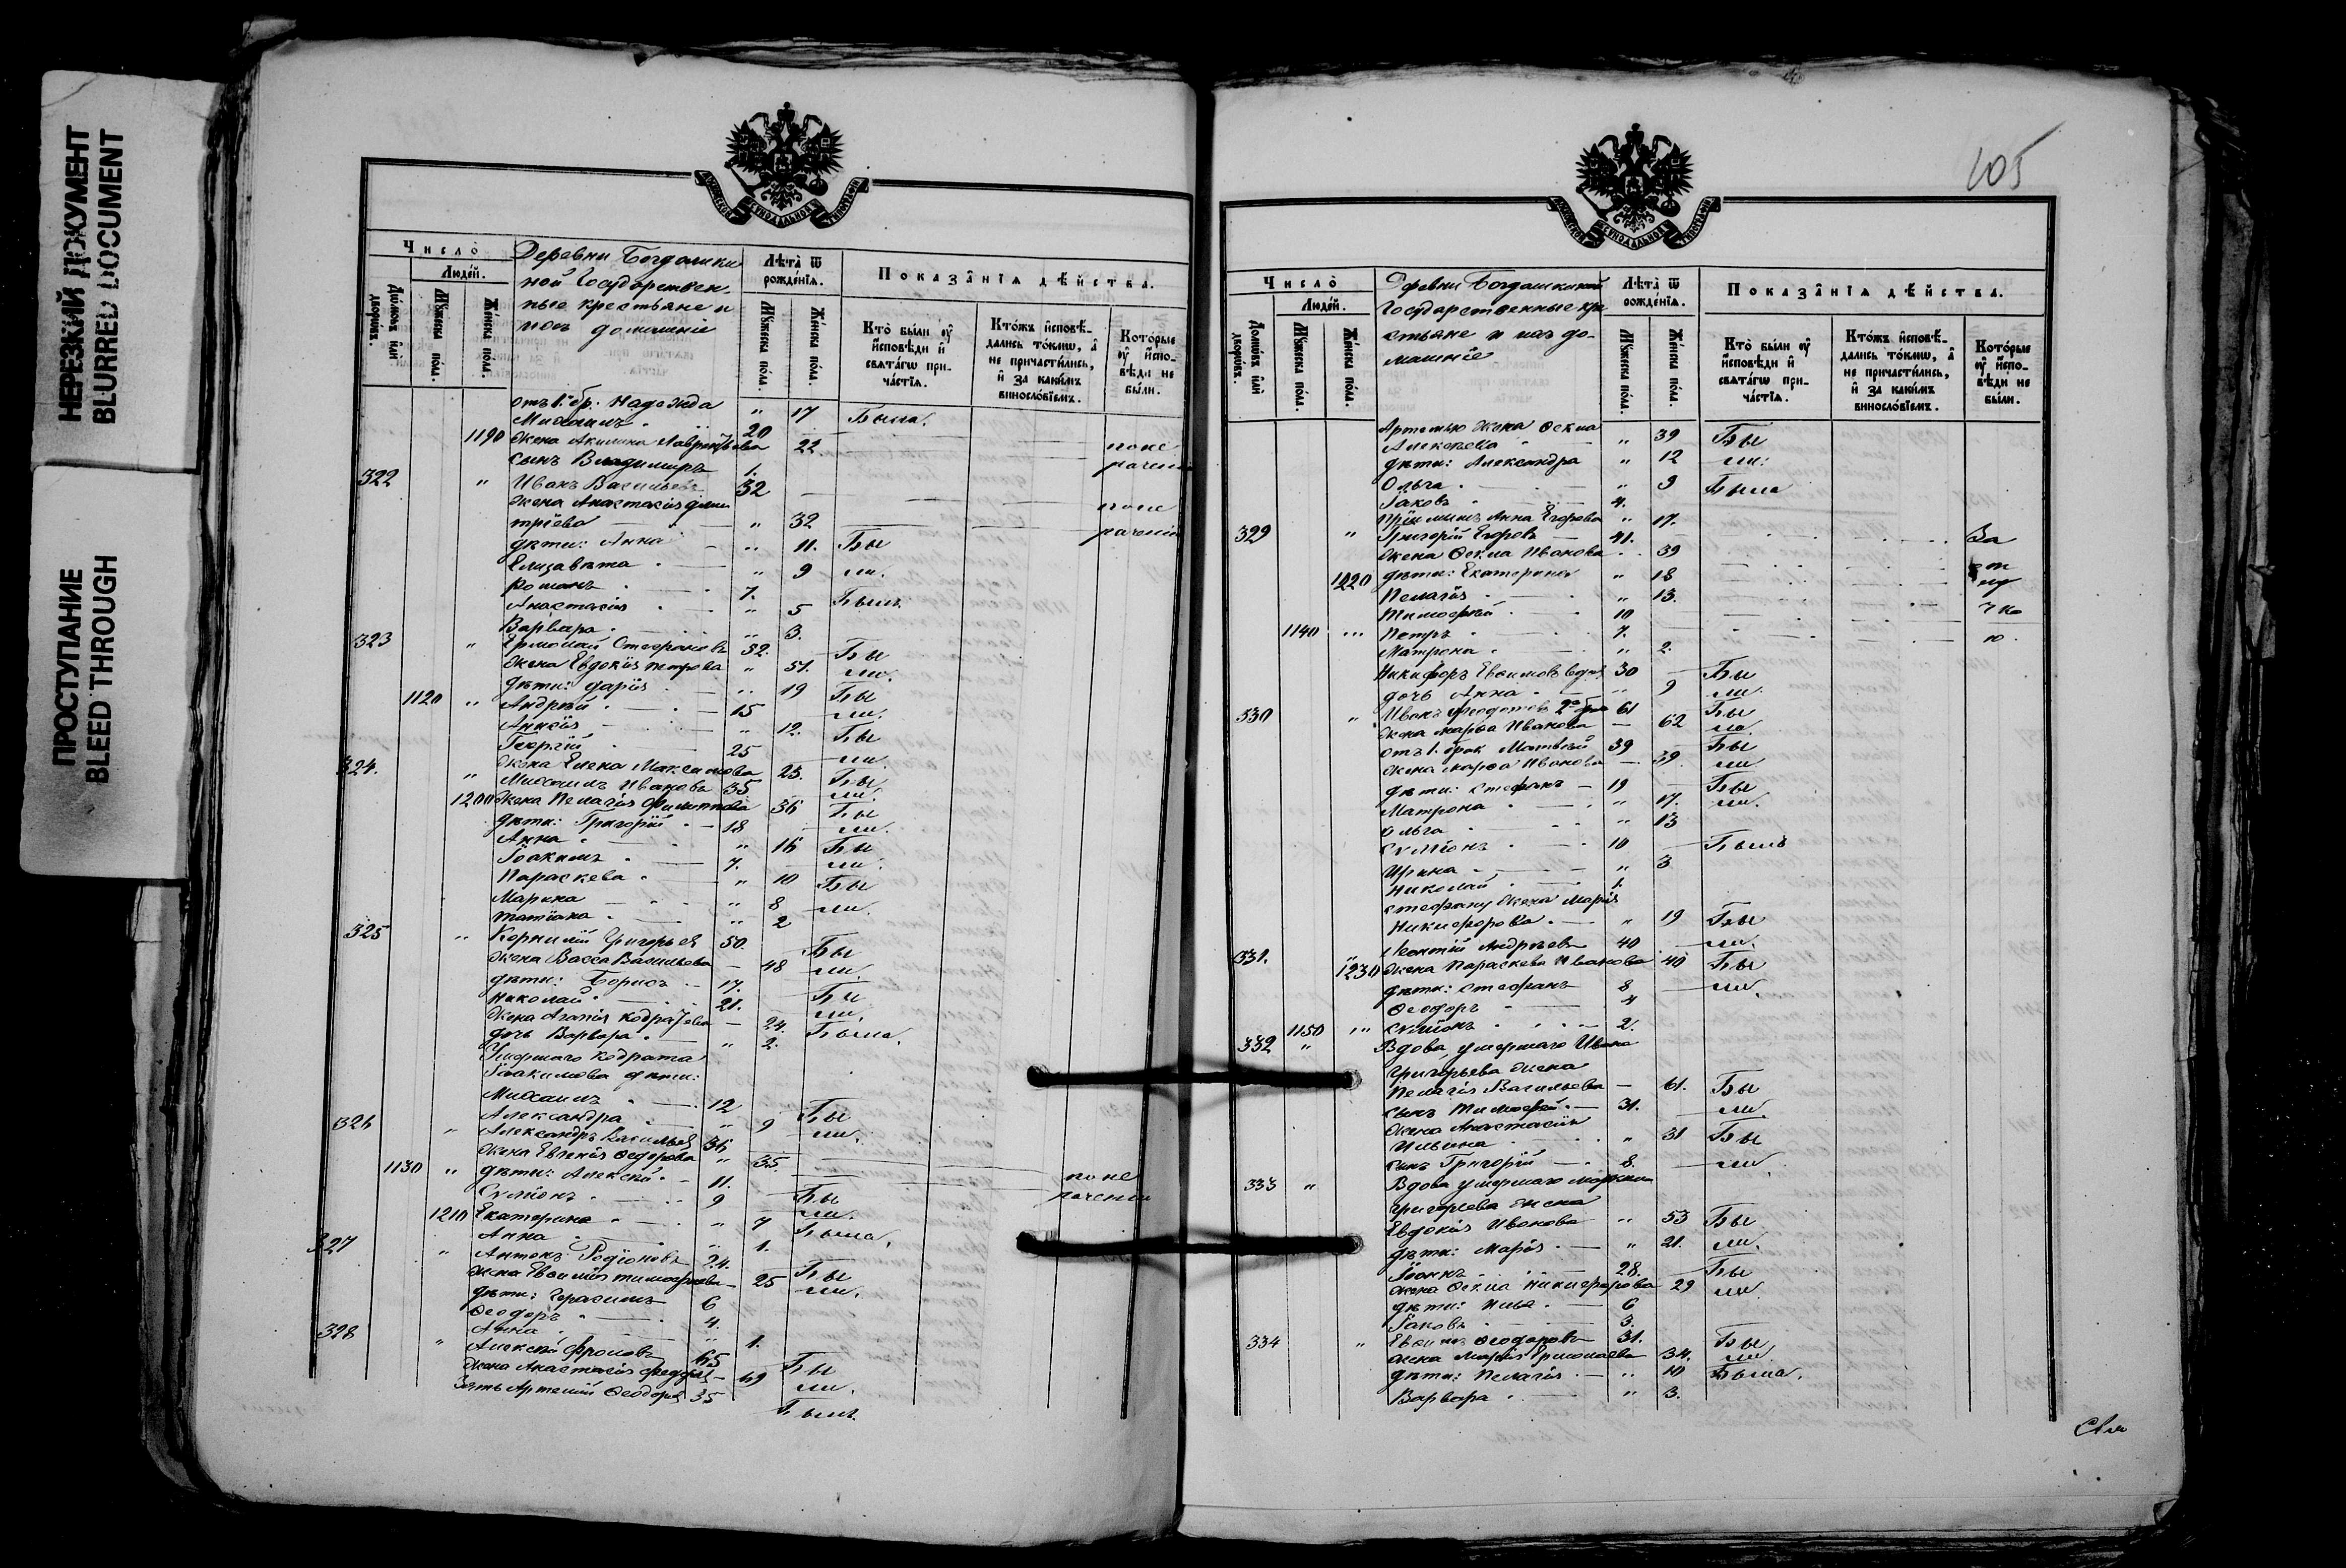 НЕРЕЗКИЙ ДОКУМЕНТ
BLURRED DOCUMENT
ПРОСТУПАНИЕ
BLEED THROUGH
МОСКОВСКОЙ СѴНОДАЛЬНОЙ ТИПОГРАФІИ
Число̀
Людéй.
Домѡвъ и҆лѝ дворѡвъ.
Мꙋ́жеска по́ла.
Же́нска по́ла.
Деревни Богдашки
ной Государствен-
ные крестьяне и
ихъ домашніе
Лѣта̀ ѿ рожде́нїѧ.
Мꙋ́жеска по́ла.
Же́нска по́ла.
Показа̑нїѧ дѣ́йства.
Кто̀ бы́ли ᲂу҆ и҆сповѣди и҆ свѧта́гѡ прича́стїѧ.
Кто́жъ и҆сповѣ́дались то́кмѡ, а҆ не причасти́лись, и҆ за каки́мъ винословїемъ.
Кото́рые ᲂу҆ и҆сповѣди не бы́ли.
отъ 1. бр. Надежда " 17 Была.
Михаилъ 20
1190 жена Акилина Лаврентьева 22 по не
сынъ Владимиръ 1. раченію
322 " Иванъ Васильевъ 32
жена Анастасія Дми по не
тріева " 32 раченію
дѣти: Анна " 11. Бы
Елизавета " 9 ли.
Романъ 7. Былъ
Анастасія " 5
Варвара " 3.
323 " Ермолай Стефановъ 52. Бы
жена Евдокія Петрова " 51. ли.
дѣти: Дарія " 19 Бы
1120 " Андрей 15 ли.
Анисія " 12. Бы
Георгій 25 ли.
жена Елена Максимова 25. Бы
324. " Михаилъ Ивановъ 35 ли.
1200 жена Пелагія Филиппова 36 Бы
дѣти: Григорій 18 ли.
Анна " 16 Бы
Іоакимъ 7. ли.
Параскева " 10 Бы
Марина " 8 ли.
Татіана " 2
325 " Корнилій Григорьев 50. Бы
жена Васса Васильева 48 ли.
дѣти: Борисъ 17. Бы
Николай 21. ли.
жена Агапія Кодратьева 24. Была.
дочь Варвара " 2.
Умершаго Кодрата
Іоакимова дѣти:
Михаилъ 12 Бы
Александра " 9 ли.
326 " Александръ Васильев 36
жена Евгенія Ѳедорова " 35. по не
1130 " дѣти: Алексѣй 11. раченію
Сѵмеонъ 9 Бы ли.
1210 Екатерина " 7 Была.
Анна " 1.
327 " Антонъ Родіоновъ 24. Бы
жена Евѳимія Тимофеева 25 ли.
дѣти: Герасимъ 6
Ѳеодоръ 4.
Анна " 1.
328 " Алексѣй Фроловъ 65 Бы
жена Анастасія 69 ли.
Зять Артемій Ѳеодоров 35 Былъ
105
МОСКОВСКОЙ СѴНОДАЛЬНОЙ ТИПОГРАФІИ
Число̀
Людéй.
Домѡвъ и҆лѝ дворѡвъ.
Мꙋ́жеска по́ла.
Же́нска по́ла.
Деревни Богдашкиной
Государственные кре
стьяне и ихъ до-
машніе
Лѣта̀ ѿ рожде́нїѧ.
Мꙋ́жеска по́ла.
Же́нска по́ла.
Показа̑нїѧ дѣ́йства.
Кто̀ бы́ли ᲂу҆ и҆сповѣди и҆ свѧта́гѡ прича́стїѧ.
Кто́жъ и҆сповѣ́дались то́кмѡ, а҆ не причасти́лись, и҆ за каки́мъ винословїемъ.
Кото́рые ᲂу҆ и҆сповѣди не бы́ли.
Артемью жена Ѳекла
Алексеева " 39 Бы
дѣти: Александра " 12 ли:
Ольга " 9 Была
Іаковъ 4.
Анна Егорова " 17.
329 " Григорій Егоровъ 41. За
жена Ѳекла Иванова 39
1220 дѣти: Екатерина " 18 от
Пелагія " 13. лу
Тимофей 10 чко
1140 " Петръ 7. ю.
Матрона " 2.
Никифоръ Евѳимовъ вдов 30 Бы
дочь Анна " 9 ли.
330 " Иванъ Ѳеодотовъ 2го бра 61 Бы
жена Марѳа Иванова 62 ли.
отъ 1. брак Матвей 39 Бы
жена Марѳа Иванова 39. ли
дѣти: Стефанъ 19 Бы
Матрона " 17. ли.
Ольга " 13
Сѵмеонъ 10 Былъ
Ирина " 3
Николай 1.
Стефану жена Марія
Никифорова " 19 Бы
331. " Леонтій Андреевъ 40 ли.
1230 жена Параскева Иванова 40 Бы
дѣти: Стефанъ 8 ли.
Ѳеодоръ 4
1150 " Сѵмеонъ 2.
332 " Вдова умершаго Ивана
Григорьева жена
Пелагія Васильева 61. Бы
сынъ Тимофей 31. ли.
жена Анастасія
Ильина " 31 Бы
сынъ Григорій 8. ли.
333 " Вдова умершаго
Григорьева жена
Евдокія Иванова " 53 Бы
дѣти: Марія " 21. ли.
Іоаннъ 28. Бы
жена Ѳекла Никифорова 29 ли.
дѣти: Илья 6
Іаковъ 3.
334 " Евѳимъ Ѳеодоровъ 31. Бы
жена Марія Ермолаева 34. ли
дѣти: Пелагія " 10 Была.
Варвара " 3.